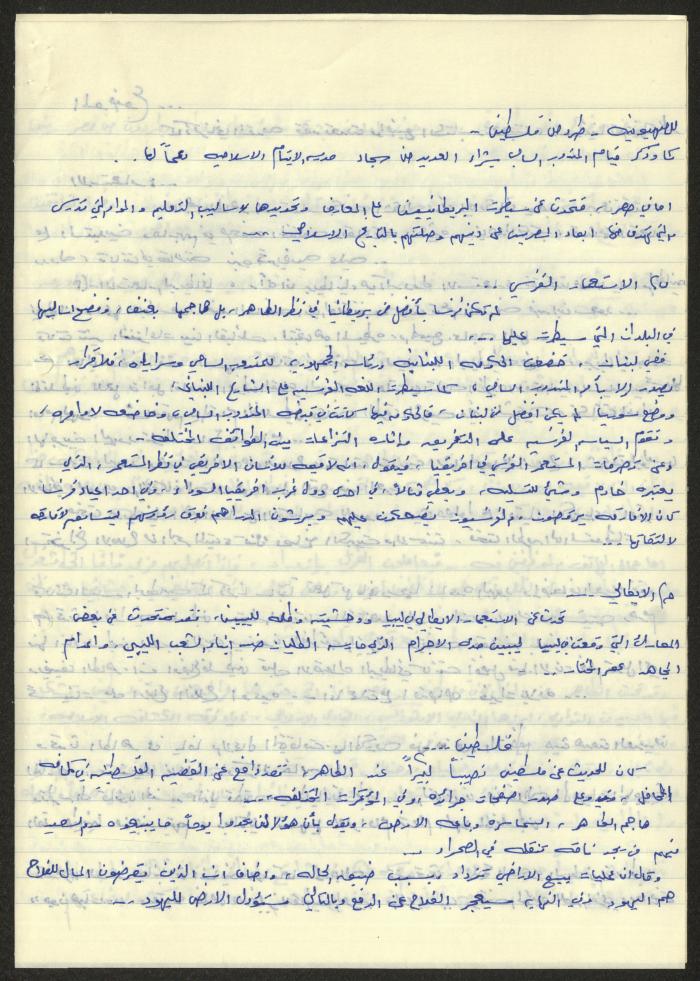 للصهيونية - طرد من فلسطين -
كما وذكر قيام المندوب السامي بشراء العديد من سجاد مدرسة الايتام الاسلامية دعماً لها . .
اما في مصر ، فتحدث عن سيطرت البريطانيين على المعارف وتحديدها لاساليب التعليم والمواد التي تدرس
والتي يهدف منها ابعاد المصريين عن دينهم وصلتهم بالتاريخ الاسلامي ...
الاستعمار الفرنسي :
لم تكن فرنسا بأفضل من بريطانيا في نظر الطاهر ، بل هاجمها بعنف ، وفضح اساليبها
في البلدان التي سيطرت عليها ...
ففي لبنان ، تخضع الحكومة اللبنانية ورئاسة الجمهورية للمندوب السامي وسراياه ، فلا قرار
يصدر الا بأمر المندوب السامي ، كما سيطرت اللغة الفرنسية على الشارع اللبناني ،
ووضع سوريا لم يكن افضل من لبنان ، فالحكومة فيها كانت في قبضة المندوب السامي ، وخاضعة لاوامره ،
وتقوم السياسة الفرنسية على التفريق واثارة النزاعات بين الطوائف المختلفة -
وعن تصرفات المستعمر الفرنسي في افريقيا ، فيقول ، انه لا قيمة للانسان الافريقي في نظر المستعمر ، الذي
يعتبره خادم وشيئ للتسلية ، ويعطي مثالاً ، في احدى دول غرب افريقيا السوداء ، وفي احد اعياد فرنسا
كان الأفارقة يرقصون ، والفرنسيون يضحكون عليهم ويرشون الدراهم فوق رؤوسهم ليتسابق الأفارقة
لالتقاطها ...
الايطالي ...
تحدث عن الاستعمار الايطالي في ليبيا ووحشيته وقتله لليبيين ، فقد تحدث عن بعض
المعارك التي وقعت في ليبيا ليبين مدى الاجرام الذي مارسه الطليان ضد ابناء الشعب الليبي ، واعدام
المجاهد عمر المختار ..
فلسطين
كان للحديث عن فلسطين نصيباً كبيراً عند الطاهر ، فقد دافع عن القضية الفلسطينية في كافة
المحافل ، وتحدث على صدر صفحات جرائده وفي المؤتمرات المختلفة ...
هاجم الطاهر ، السماسرة وباعة الاراضي ، ويقول بأن هؤلاء لن يجدوا يوماً ما يبيعوه والسعيد
منهم من يجد ناقة تنقله في الصحراء ...
وقال ان عمليات بيع الاراضي تزداد بسبب ضيق الحالة ، واضاف ان الذين يقرضون المال للفلاح
هم اليهود وفي النهاية سيعجز الفلاح عن الدفع وبالتالي ستؤول الارض لليهود ...